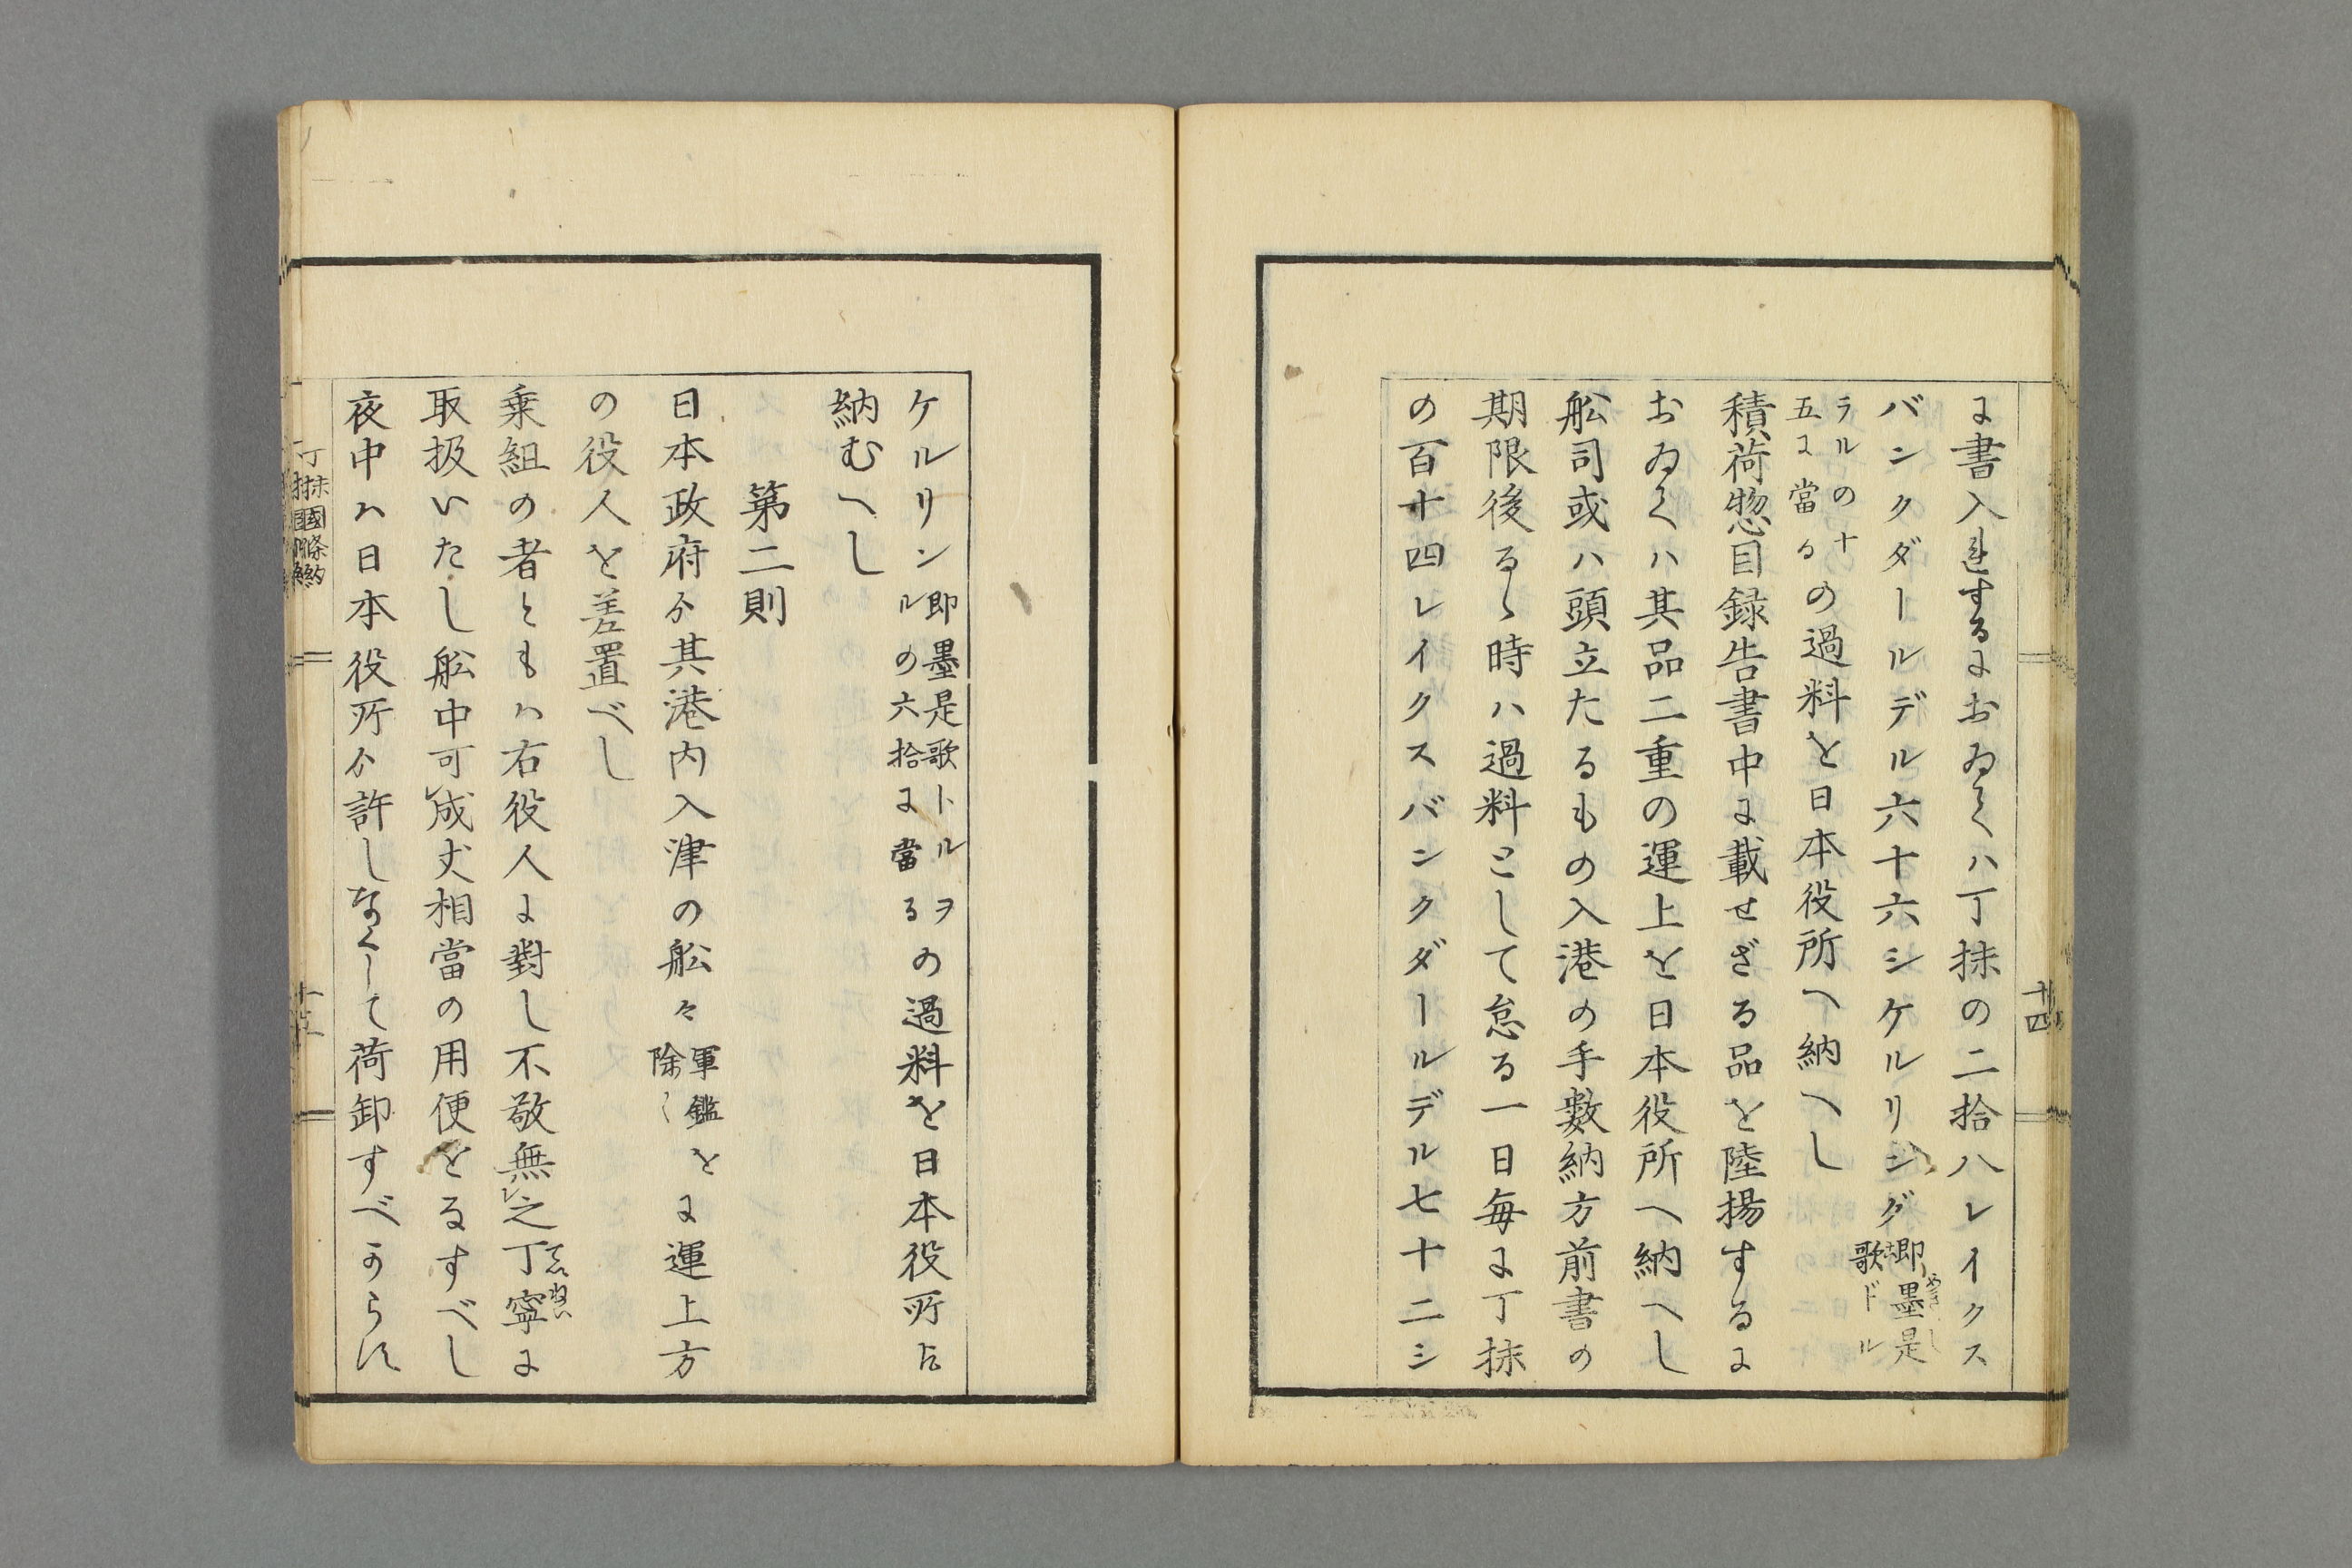 に書入連するにおゐてハ丁抹の二拾八レイクス
バンクダールルデル六十六シケルリング即墨是歌ドル
ラルの十五に當るの過料を日本役所へ納へし
積荷惣目録告書中に載せざる品を陸揚するに
おゐてハ其品二重の運上を日本役所へ納へし
舩司或ハ頭立たるもの入港の手數納方前書の
期限後るゝ時ハ過料として怠る一日毎に丁抹
の百十四レイクスバンクダールルデル七十二シ
十四
ケルリン即墨是歌トルヲルの六拾に當るの過料を日本役所に
納むへし
第二則
日本政府ゟ其港内入津の舩々軍鑑を除くに運上方
の役人を差置べし
乗組の者ともハ右役人に對し不敬無レ之丁寧に
取扱いたし舩中可レ成丈相當の用便をるすべし
夜中ハ日本役所ゟ許しなくして荷卸すべからす
丁抹國條約